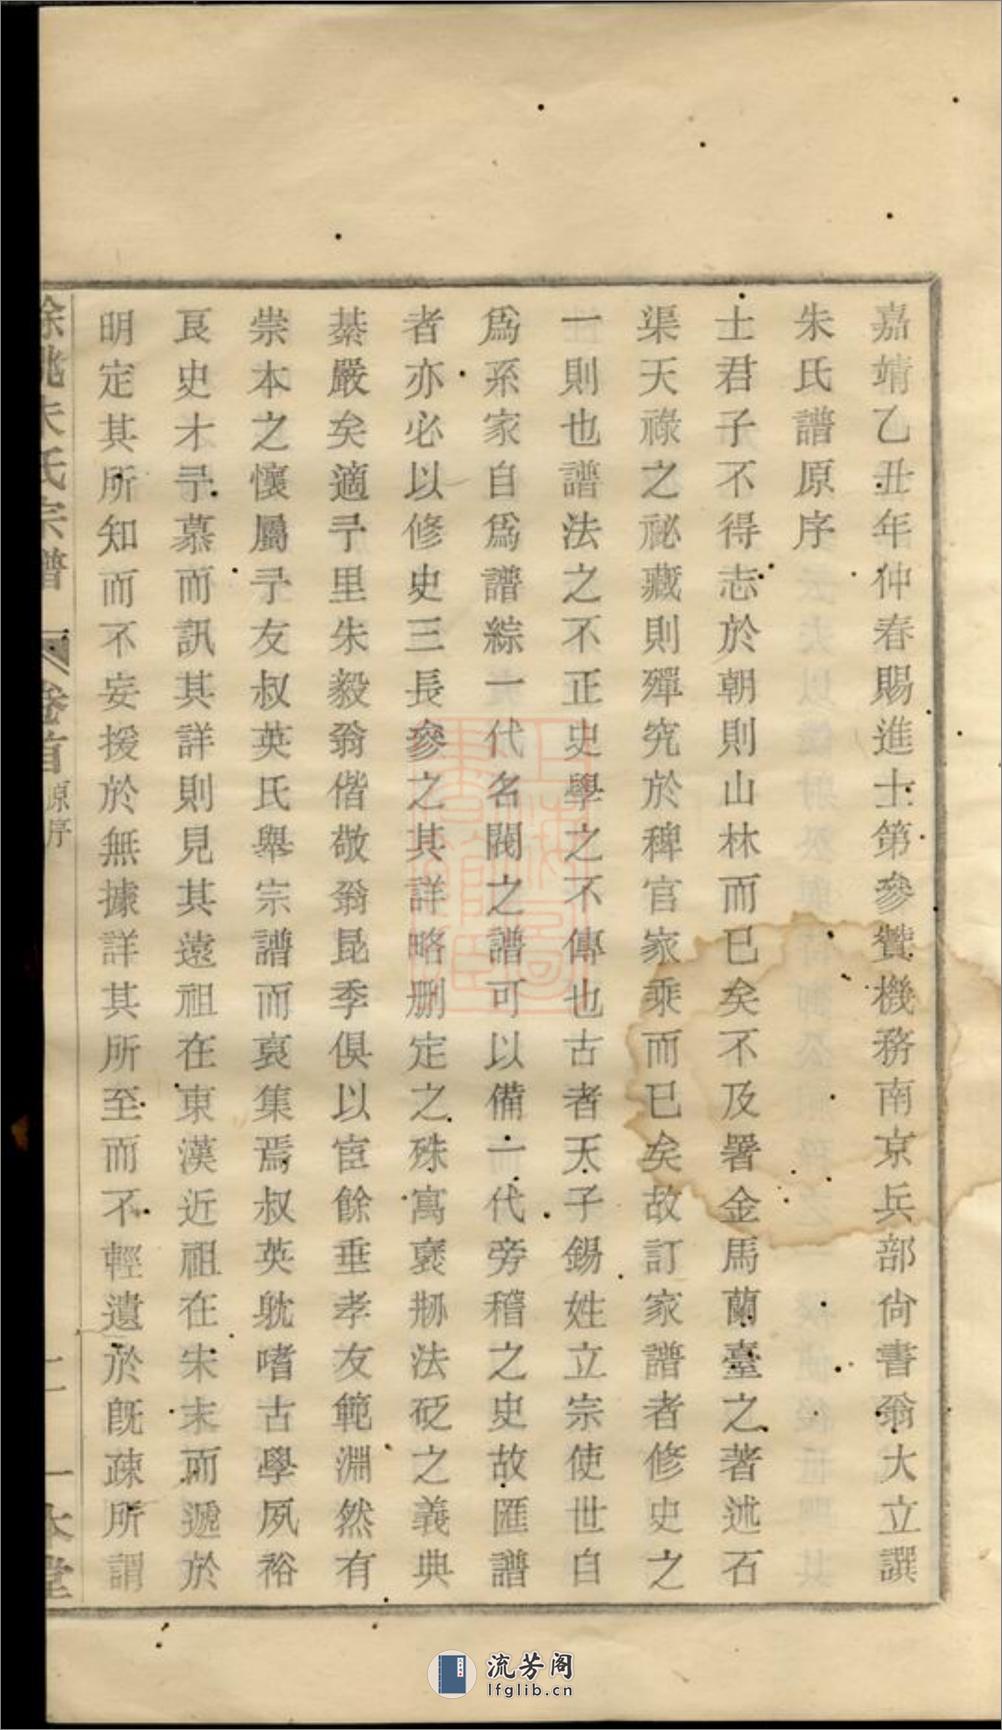 嘉靖乙丑年仲春賜進士第參贊機務南京兵部尙書翁大立譔
朱氏譜原序
士君子不得志於朝則山林而已矣不及署金馬蘭臺之著述石
渠天祿之祕藏則殫究於稗官家乘而已矣故訂家譜者修史之
一則也譜法之不正史學之不傳也古者天子錫姓立宗使世自
爲系家自爲譜綜一代名閥之譜可以備一代旁稽之史故匯譜
者亦必以修史三長參之其詳略删定之殊寓褒貶法砭之義典
綦嚴矣適予里朱毅翁偕敬翁昆季俱以宦餘垂孝友範淵然有
崇本之懷屬予友叔英氏舉宗譜而裒集焉叔英躭嗜古學夙裕
良史才予慕而訊其詳則見其遠祖在東漢近祖在宋末而遞於
明定其所知而不妄援於無據詳其所至而不輕遺於旣疎所謂
餘姚朱氏宗譜
卷首
原序
一本堂
流芳阁
lfglib.cn